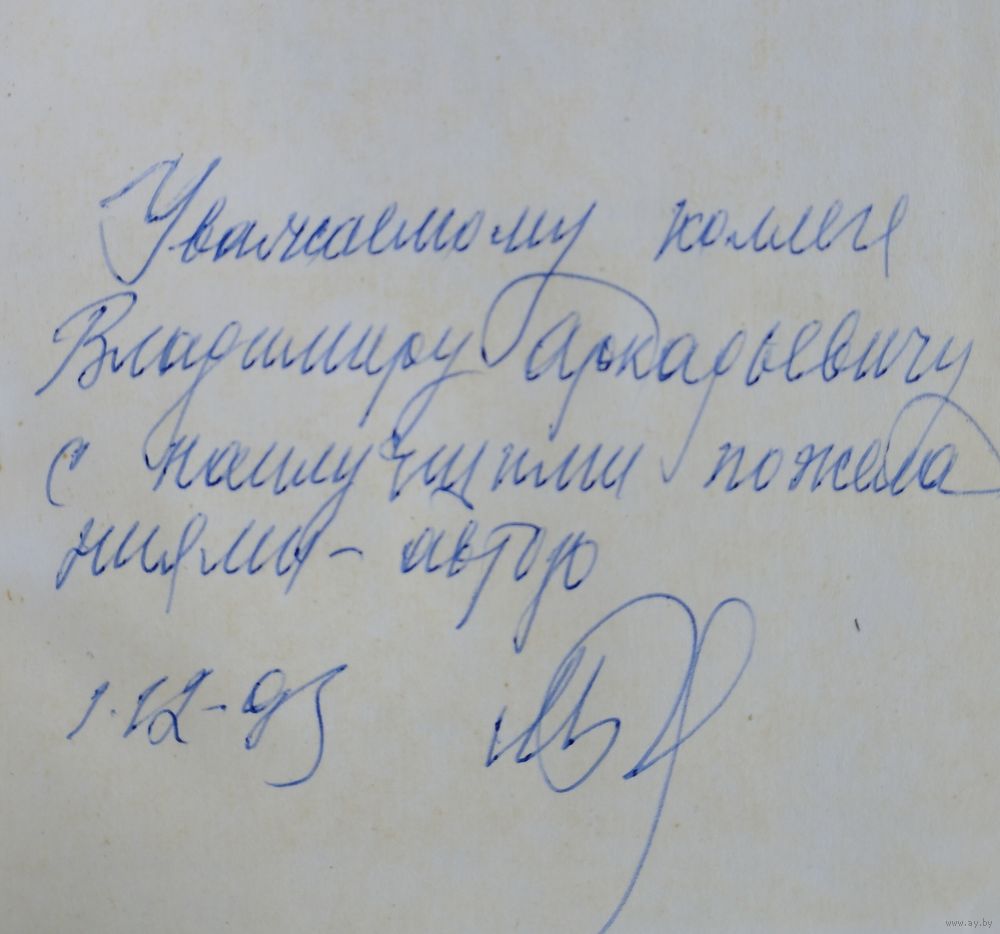 Уважаемому коллеге
Владимиру Аркадьевичу
с наилучшими пожела
ниями – автор
1.12-95
www.ay.by